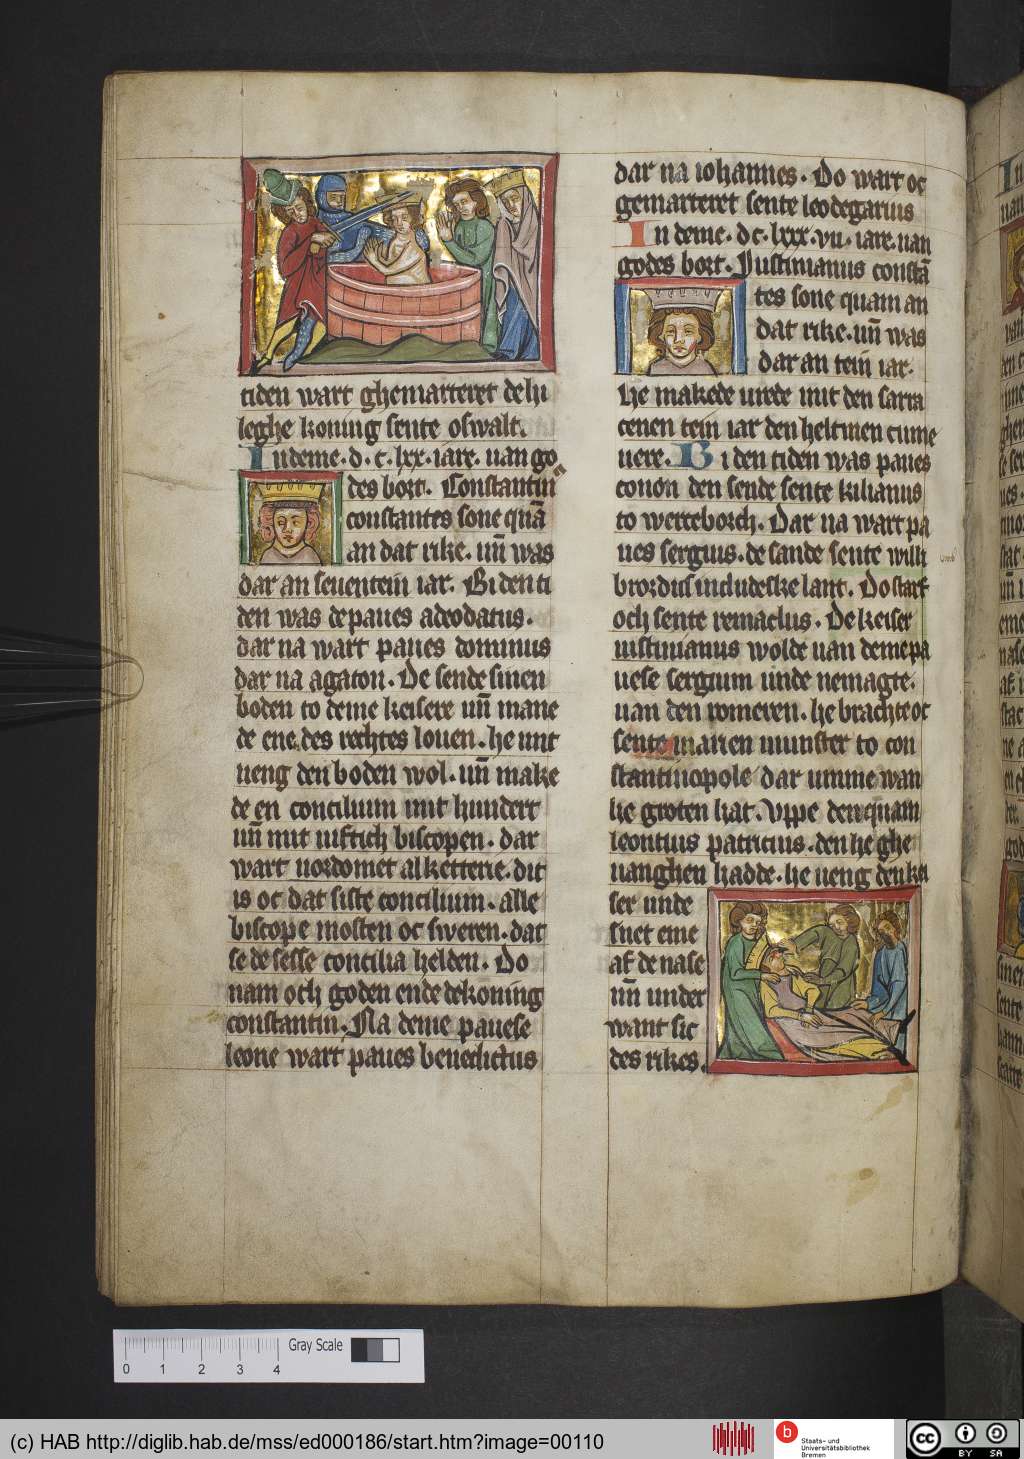 tiden wart ghemarteret de hi
leghe koning sente oswalt.
In deme. d. c. lxx. iare. uan go
des bort. Constantin
constantes sone quā
an dat rike. uñ was
dar an seuentein iar. Bi den ti
den was de paues adeodatus.
dar na wart paues dominus
dar na agaton. De sende sinen
boden to deme keisere uñ mane
de ene des rechtes louen. he unt
ueng den boden wol. uñ make
de en concilium mit hundert
uñ mit uiftich biscopen. dar
wart uordomet al ketterie. dit
is oc dat siste concilium. alle
biscope mosten oc sweren. dat
se de sesse concilia helden. Do
nam och goden ende de koning
constantin. Na deme pauese
leone wart paues benedictus
dar na iohannes. Do wart oc
gemarteret sente leodegarius
In deme. dc. lxxx. vii. iare. uan
godes bort. Justinianus constā
tes sone quam an
dat rike. uñ was
dar an tein iar.
he makede urede mit den sarra
cenen tein iar den heltmen cume
uere. Bi den tiden was paues
conon den sende sente kilianus
to werceborch. Dar na wart pa
ues sergius. de sande sente willi
brordus in dudeske lant. Do starf
och sente remaclus. De keiser
iustinianus wolde uan deme pa
uese sergium unde nemagte.
uan den romeren. he brachte oc
sente marien munster to con
stantinopole dar umme wan
he groten hat. Uppe den quam
leontius patricius. den he ghe
uanghen hadde. he ueng den kei
ser unde
snet eme
af de nase
uñ under
want sic
des rikes.
0 1 2 3 4 Gray Scale
(c) HAB http://diglib.hab.de/mss/ed000186/start.htm?image=00110
b Staats- und
Universitätsbibliothek
Bremen
cc BY SA